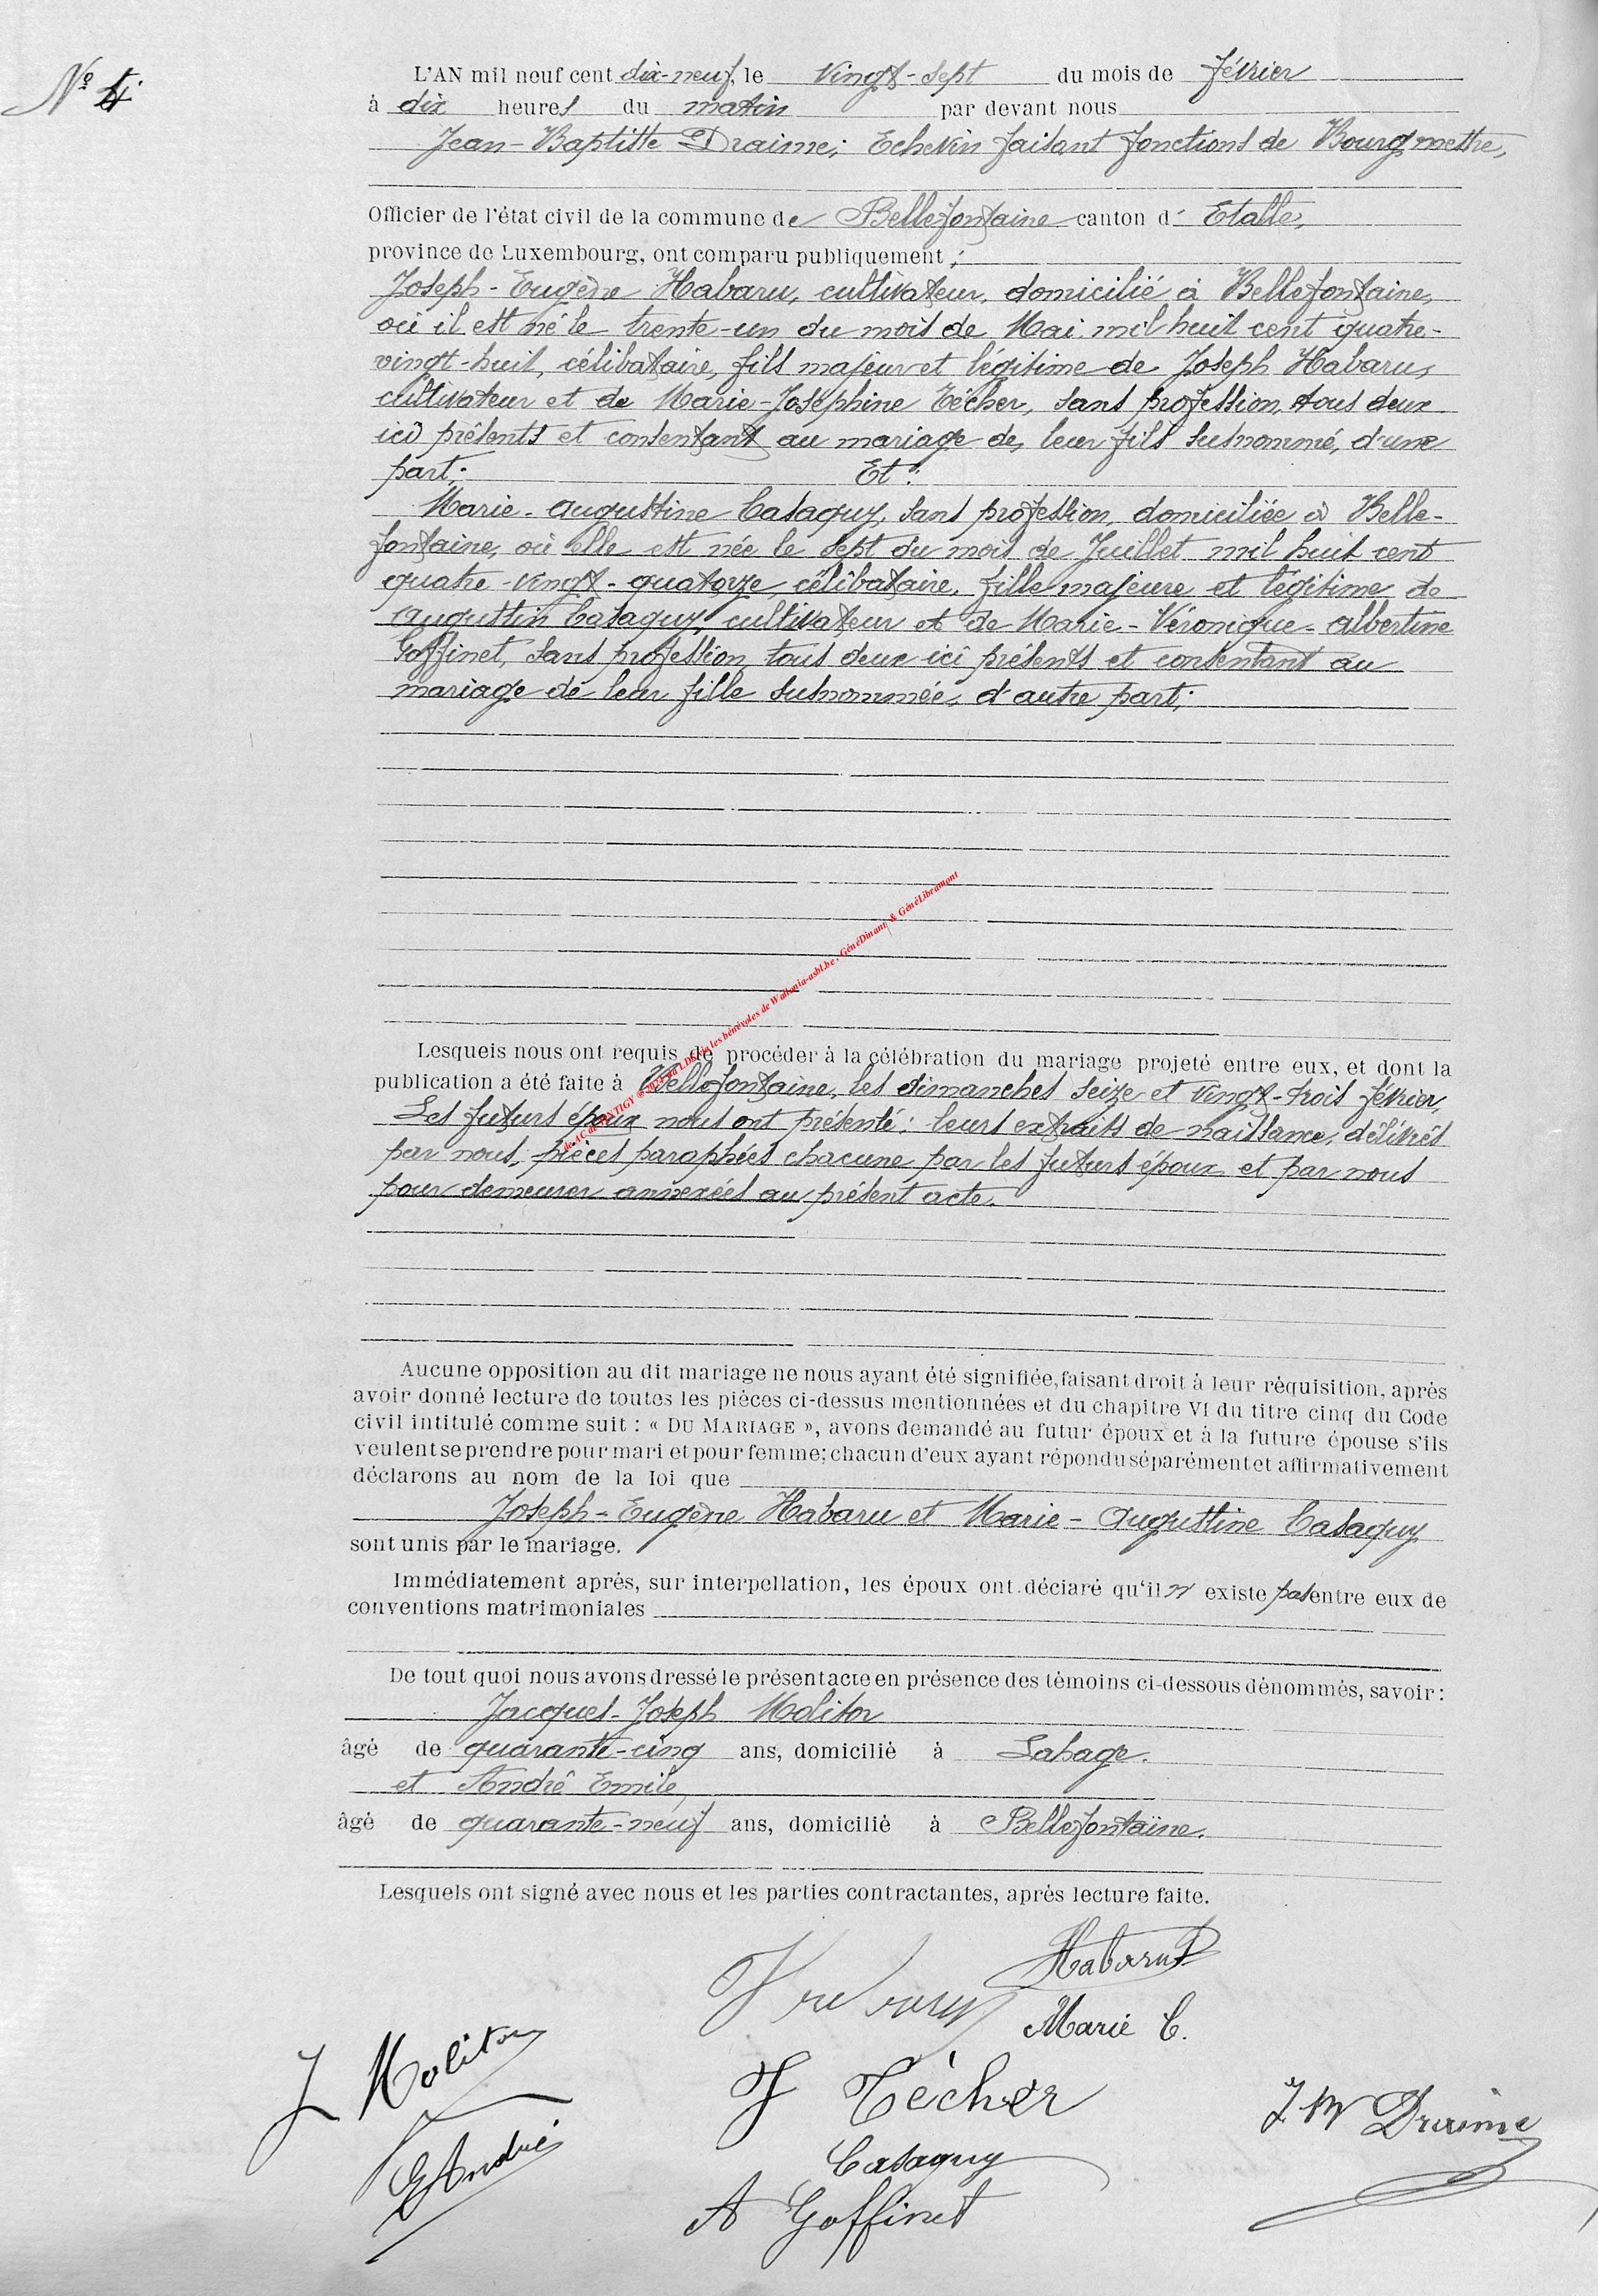 N° 4
L'AN mil neuf cent dix-neuf, le vingt-sept du mois de février
à dix heures du matin par devant nous
Jean-Baptiste Draime; Echevin faisant fonctions de Bourgmettre,
Officier de l'état civil de la commune de Bellefontaine canton d' Etalle,
province de Luxembourg, ont comparu publiquement :
Joseph-Eugène Habaru, cultivateur, domicilié à Bellefontaine,
où il est né le trente-un du mois de Mai mil huit cent quatre-
vingt-huit, célibataire, fils majeur et légitime de Joseph Habaru,
cultivateur et de Marie-Joséphine Técher, sans profession, tous deux
ici présents et consentant au mariage de leur fils susnommé, d'une
part; Et :
Marie-Augustine Casaquy, sans profession, domiciliée à Belle-
fontaine, où elle est née le sept du mois de Juillet mil huit cent
quatre-vingt-quatorze, célibataire, fille majeure et légitime de
Augustin Casaquy, cultivateur et de Marie-Véronique-Albertine
Goffinet, sans profession, tous deux ici présents et consentant au
mariage de leur fille susnommée, d'autre part;
de AC de TINTIGY © 2024 via LDS via les bénévoles de Wallonia-asbl.be, GénéDinant & GénéLibramont
Lesquels nous ont requis de procéder à la célébration du mariage projeté entre eux, et dont la
publication a été faite à Bellefontaine, les dimanches seize et vingt-trois février,
Les futurs époux nous ont présenté : leurs extraits de naissance, délivrés
par nous, pièces paraphées chacune par les futurs époux et par nous
pour demeurer annexées au présent acte.
Aucune opposition au dit mariage ne nous ayant été signifiée, faisant droit à leur réquisition, après
avoir donné lecture de toutes les pièces ci-dessus mentionnées et du chapitre VI du titre cinq du Code
civil intitulé comme suit : « DU MARIAGE », avons demandé au futur époux et à la future épouse s'ils
veulent se prendre pour mari et pour femme; chacun d'eux ayant répondu séparément et affirmativement
déclarons au nom de la loi que
Joseph-Eugène Habaru et Marie-Augustine Casaquy
sont unis par le mariage.
Immédiatement après, sur interpellation, les époux ont déclaré qu'il n' existe pas entre eux de
conventions matrimoniales
De tout quoi nous avons dressé le présent acte en présence des témoins ci-dessous dénommés, savoir :
Jacques-Joseph Molitor
âgé de quarante-cinq ans, domicilié à Lahage.
et André Emile,
âgé de quarante-neuf ans, domicilié à Bellefontaine.
Lesquels ont signé avec nous et les parties contractantes, après lecture faite.
Habaru
Marie C.
J Molitor
J Técher
J B Draime
E André
Casaquy
A Goffinet